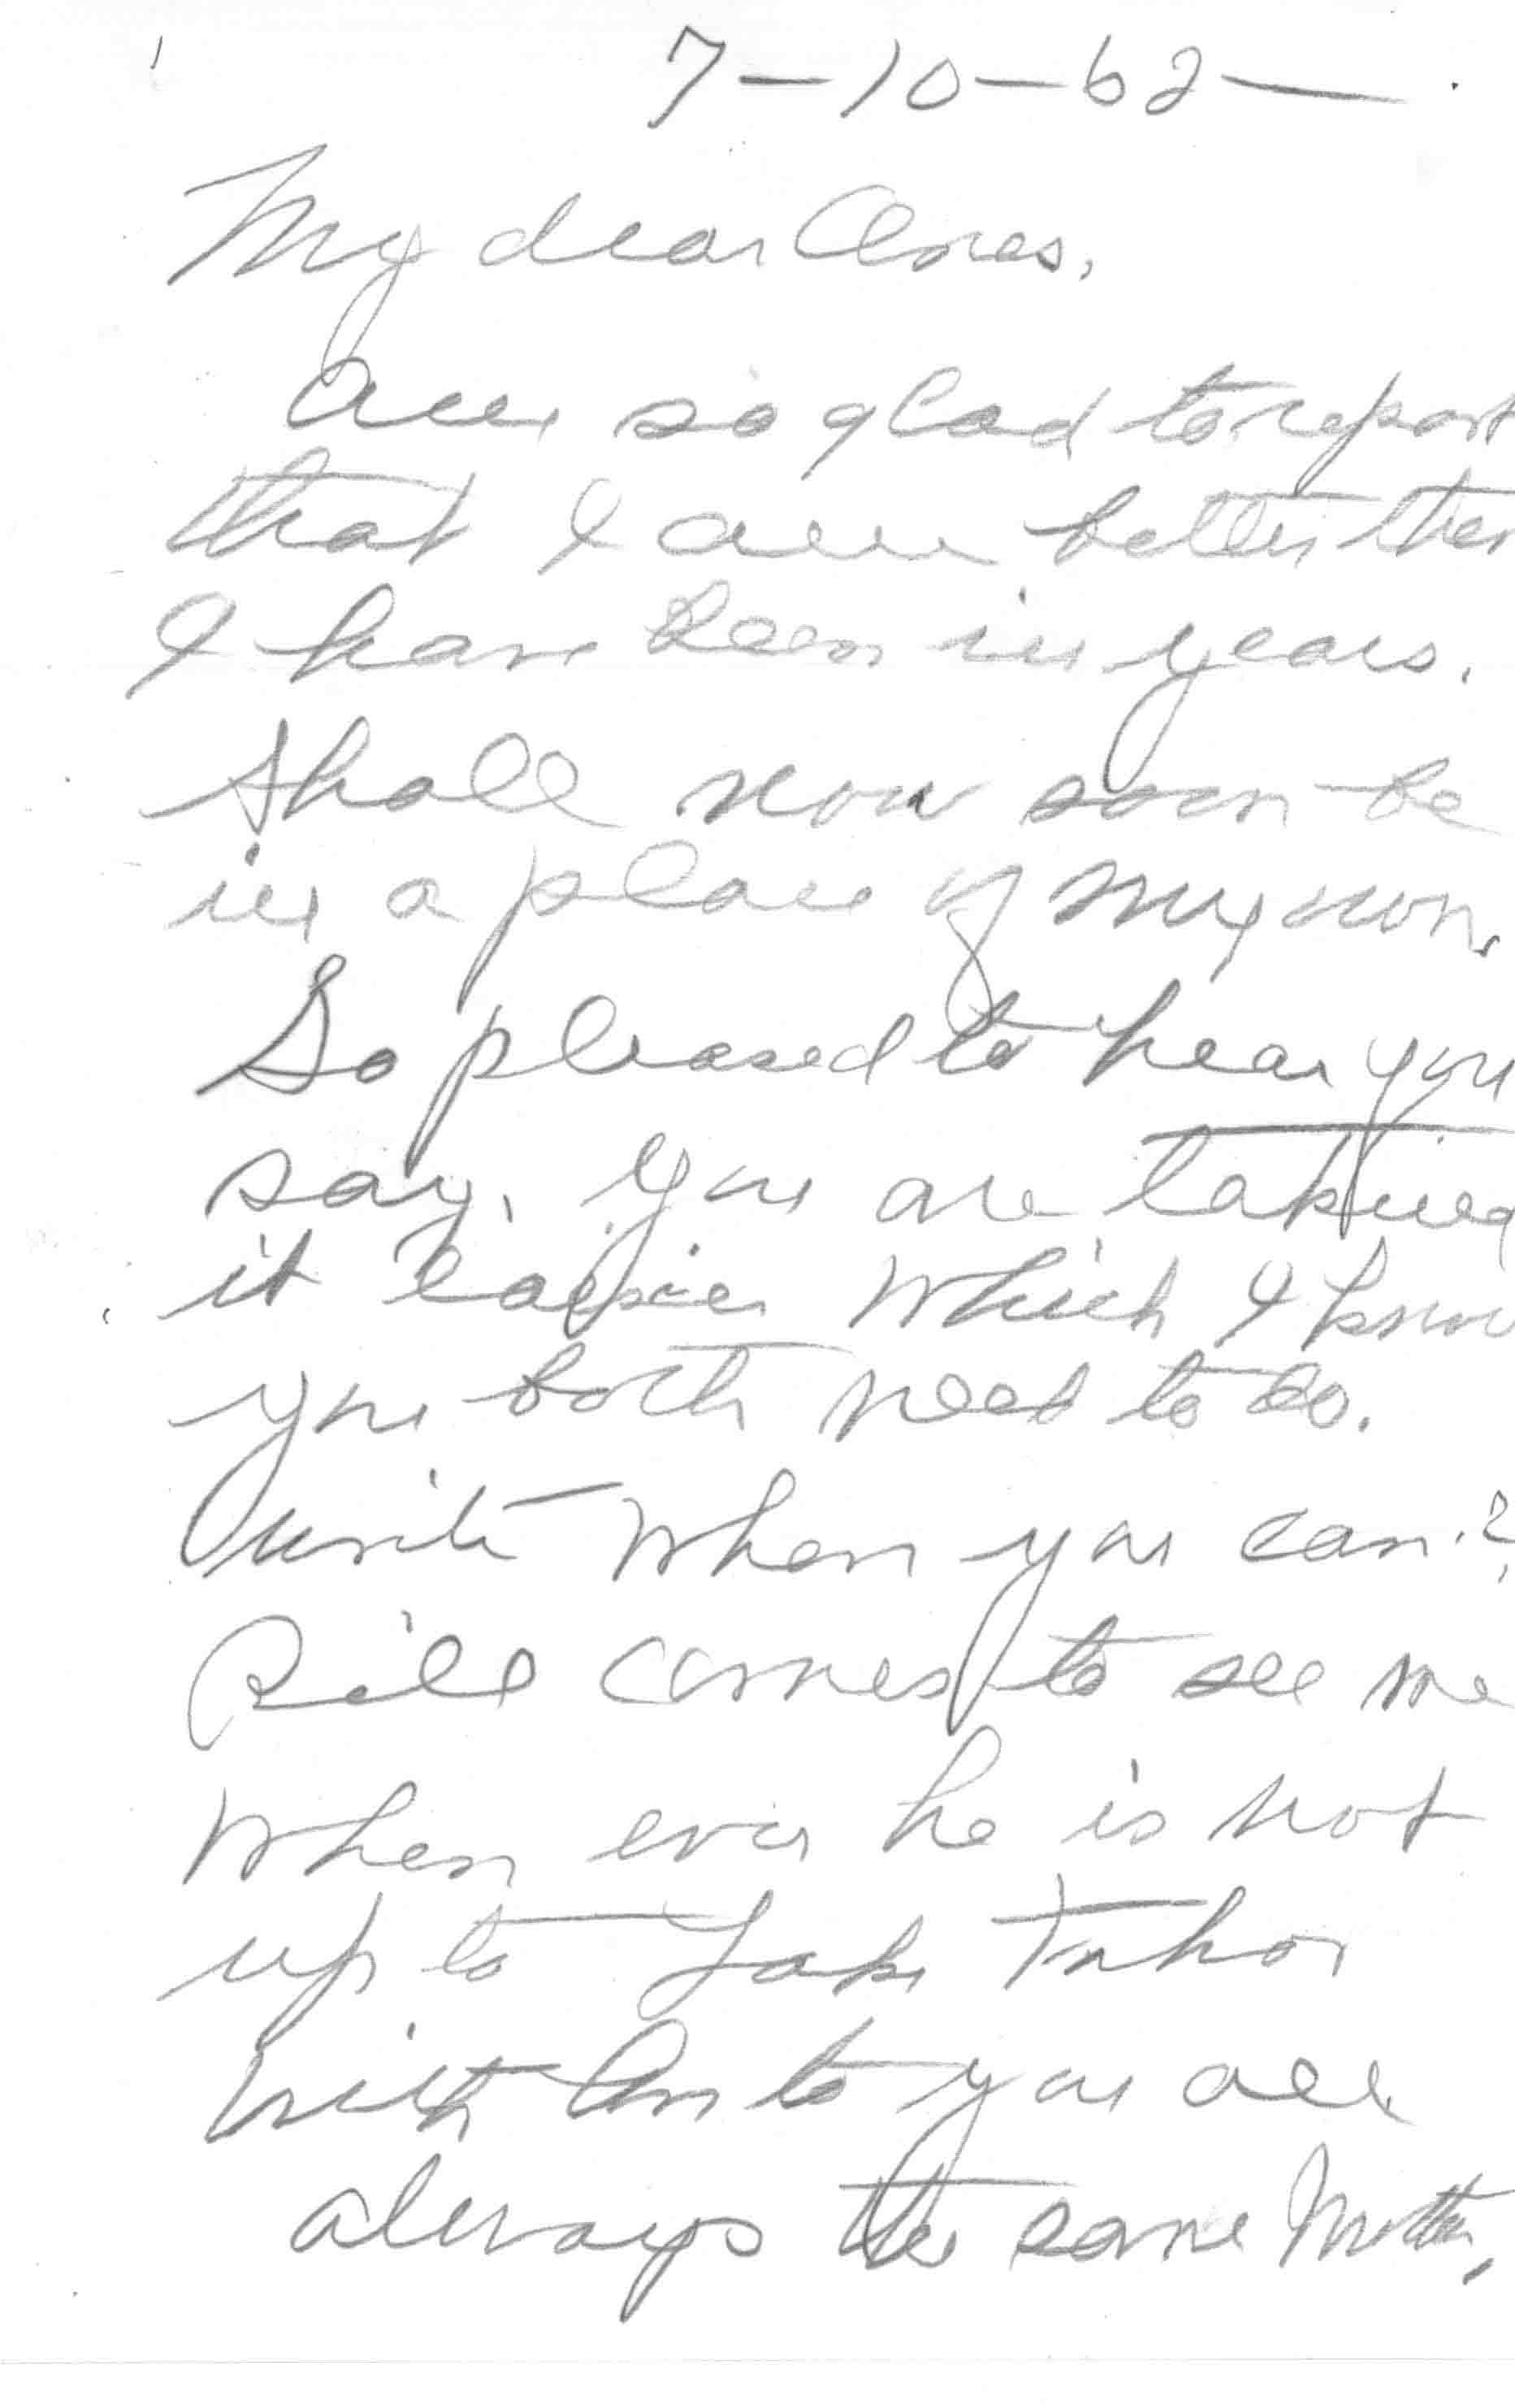 7-10-62
My dear Ones,
Am so glad to report
that I am better than
I have been in years.
Shall now soon be
in a place of my own.
So pleased to hear you
say, you are taking
it easier which I know
you both need to do.
Write when you can?
Bill comes to see me
when ever he is not
up to Lake Tahoe
With to you all
always the same Mother,